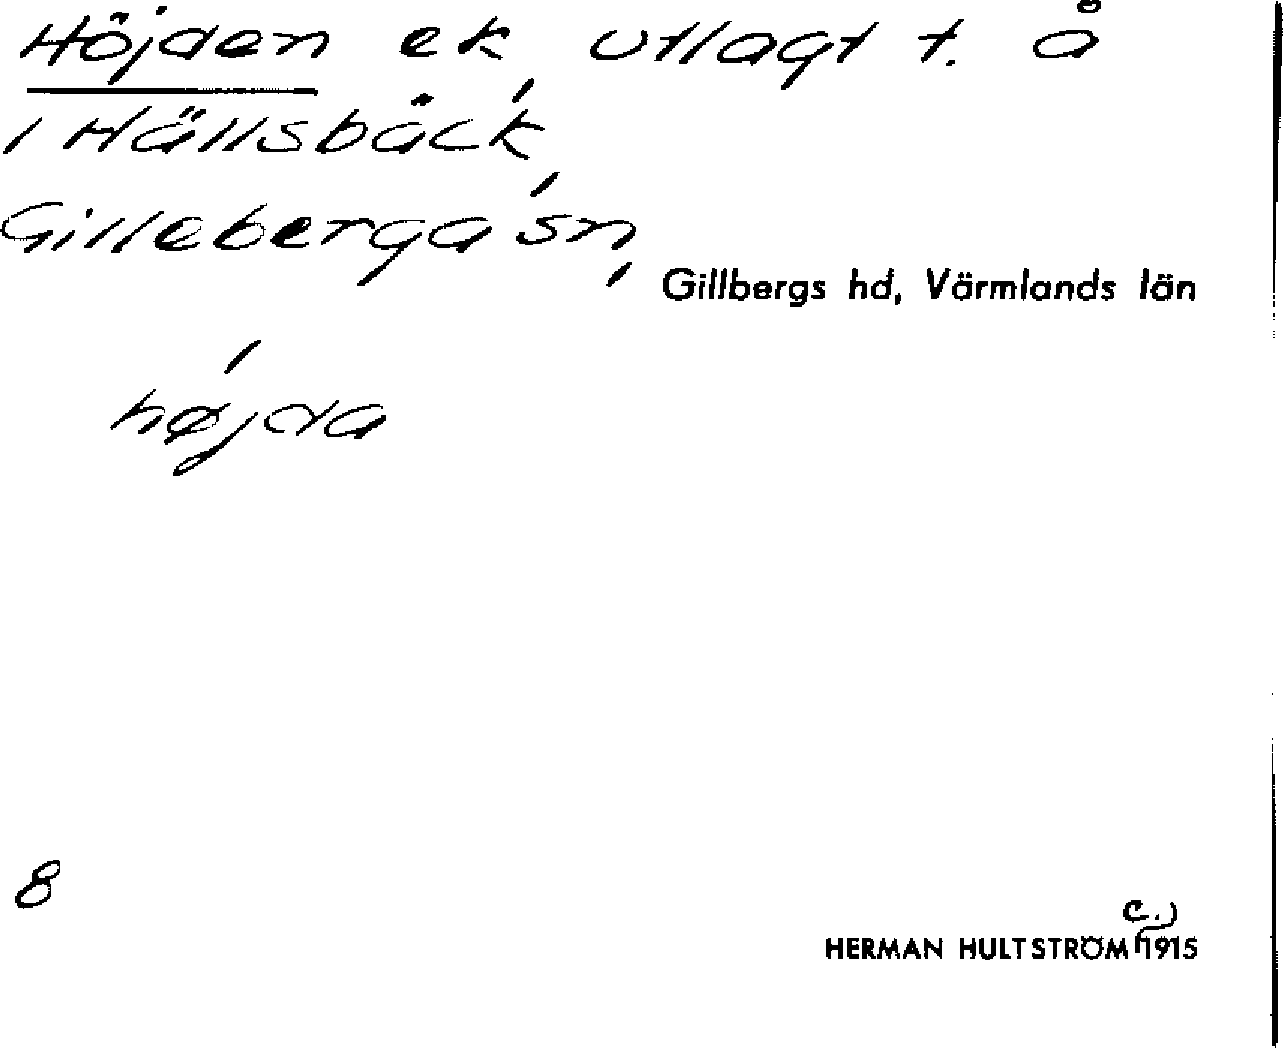 Höjden ek, utlagt t. å
i Hällsbäck,
Gillebergasn,
Gillbergs hd, Värmlands län
hǿjda
8
c.)
HERMAN HULTSTRÖM 1915